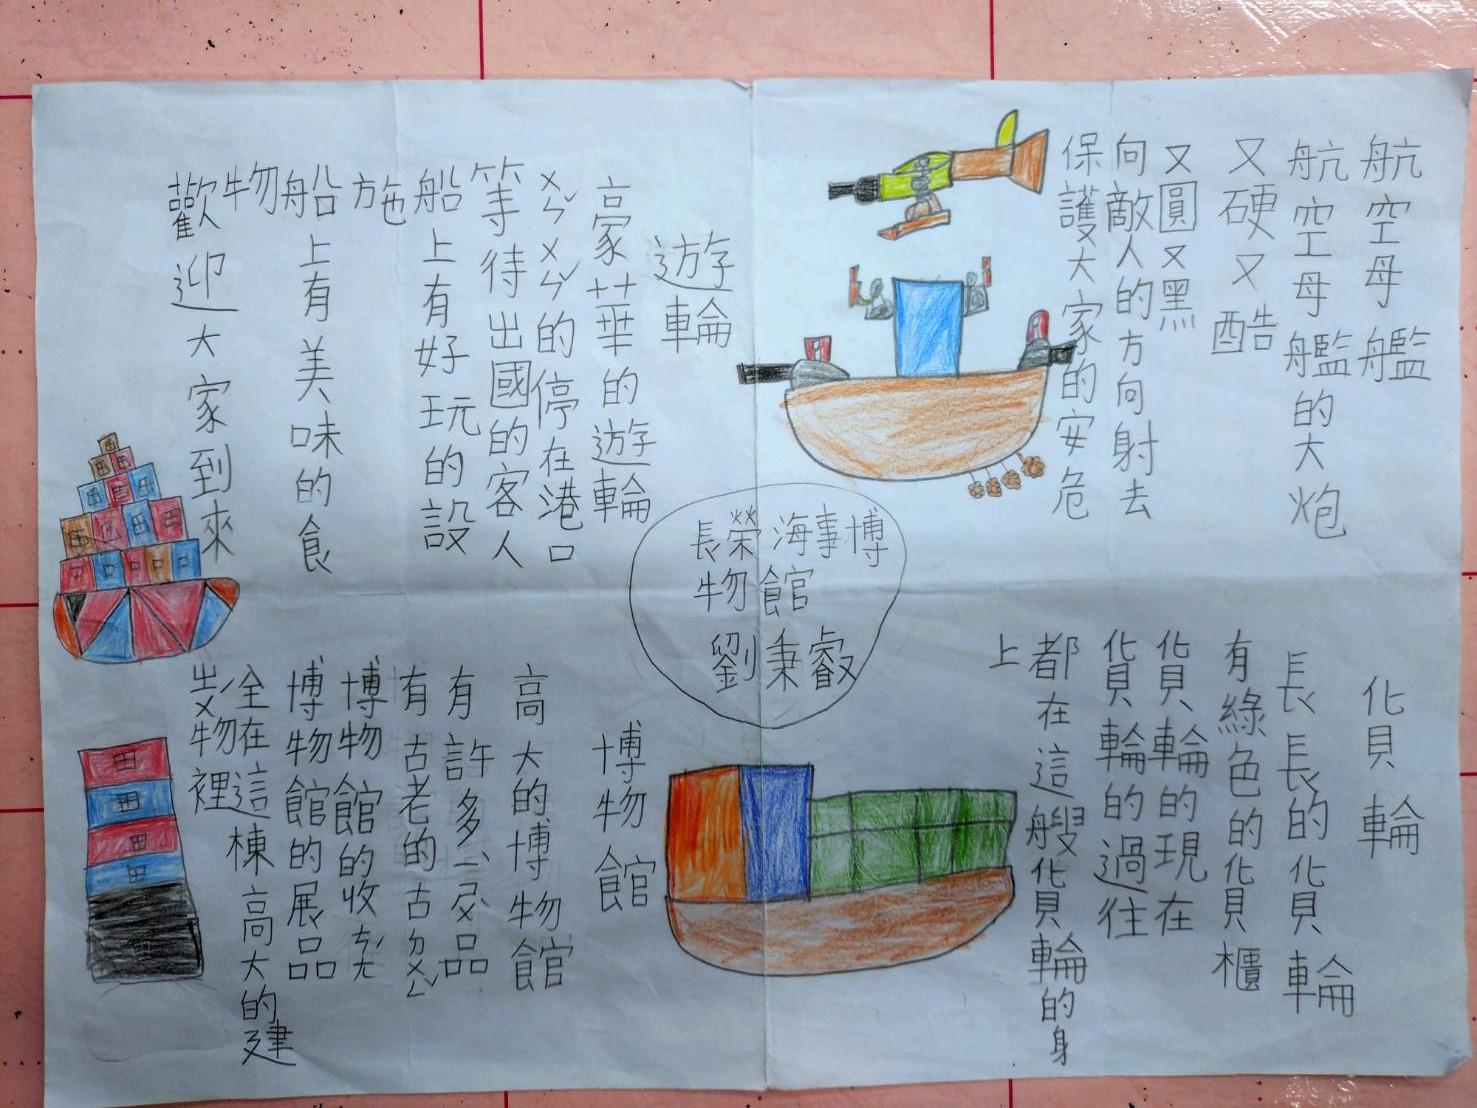 航空母艦
航空母艦的大炮
又硬又酷
又圓又黑
向敵人的方向射去
保護大家的安危
遊輪
豪華的遊輪
ㄨㄣˇㄨㄣˇ的停在港口
等待出國的客人
船上有好玩的設
施
船上有美味的食
物
歡迎大家到來
長榮海事博
物館
劉秉叡
貨輪
長長的貨輪
有綠色的貨櫃
貨輪的現在
貨輪的過往
都在這艘貨輪的身
上
博物館
高大的博物館
有許多品
有古老的古ㄉㄨㄥˇ
博物館的收ㄘㄤˊ
博物館的展品
全在這棟高大的建
ㄓㄨˊ物裡